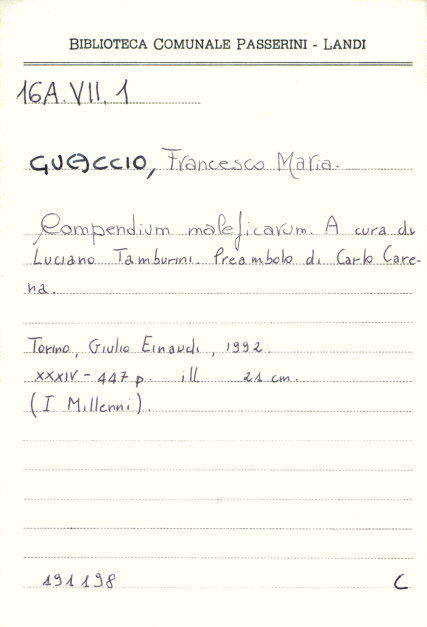 BIBLIOTECA COMUNALE PASSERINI - LANDI
16A.VII.1
GUACCIO, Francesco Maria.
Compendium maleficarum. A cura di
Luciano Tamburini. Preambolo di Carlo Care-
na.
Torino, Giulio Einaudi, 1992.
XXXIV-447 p. ill 21 cm.
(I Millenni).
191198 C